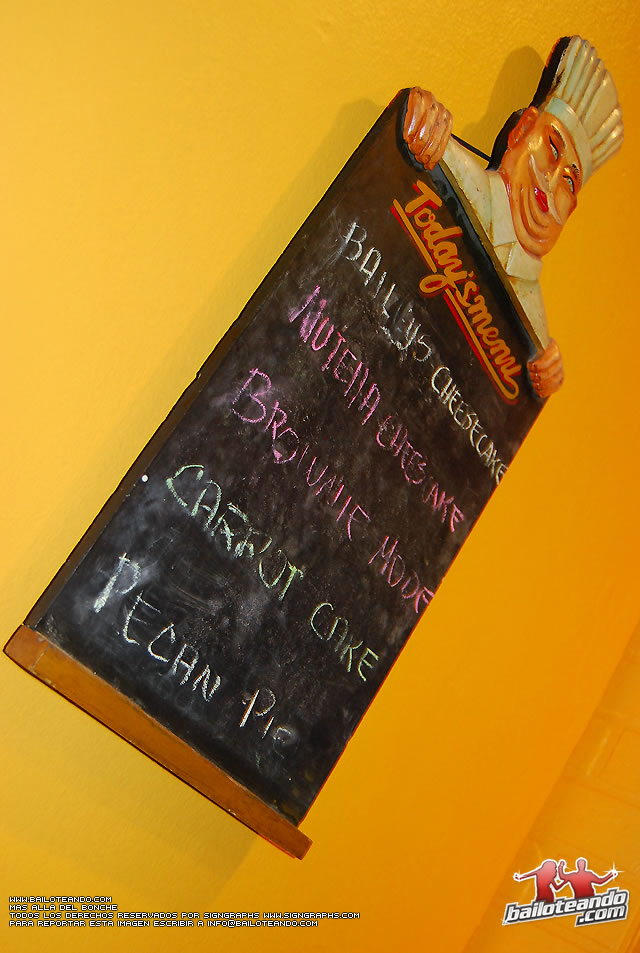 Today's menu
BAILEYS CHEESECAKE
NUTELLA CHEESCAKE
BROWNIE MODE
CARROT CAKE
PECAN PIE
WWW.BAILOTEANDO.COM
MAS ALLA DEL BONCHE
TODOS LOS DERECHOS RESERVADOS POR SIGNGRAPHS WWW.SIGNGRAPHS.COM
PARA REPORTAR ESTA IMAGEN ESCRIBIR A INFO@BAILOTEANDO.COM
bailoteando.com